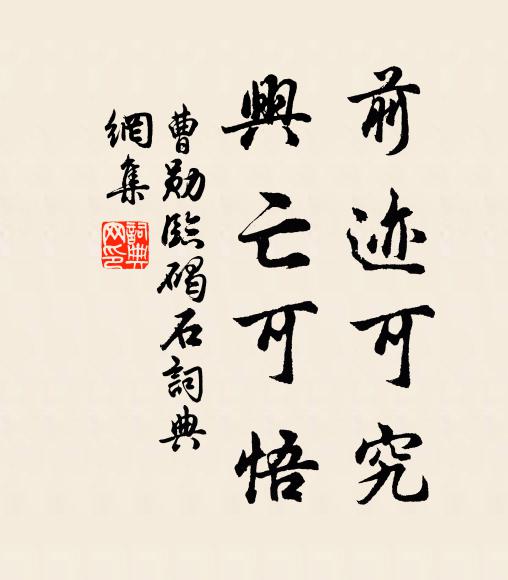 前迹可究
興亡可悟
曹勛臨碣石詞典
網集
詞典网印